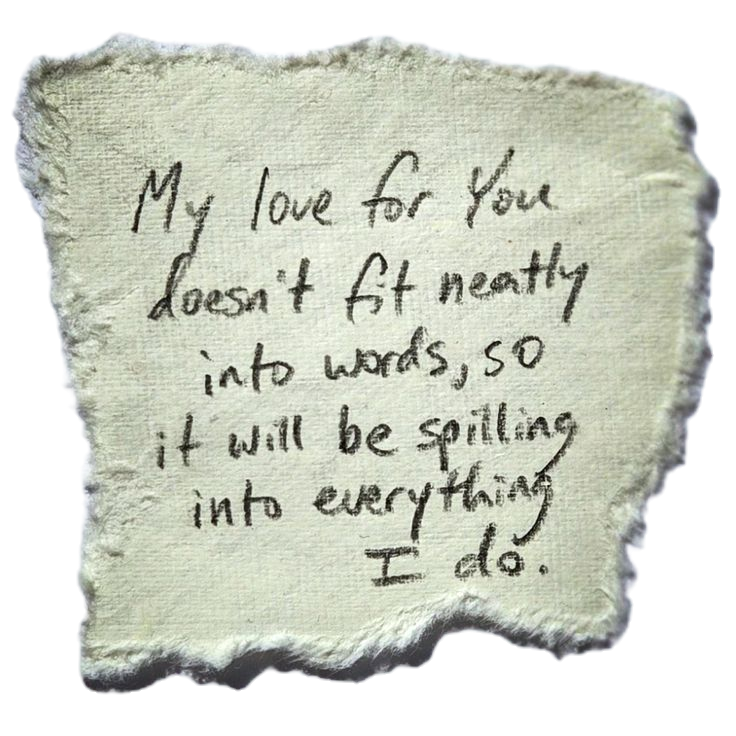 My love for You
doesn't fit neatly
into words, so
it will be spilling
into everything
I do.